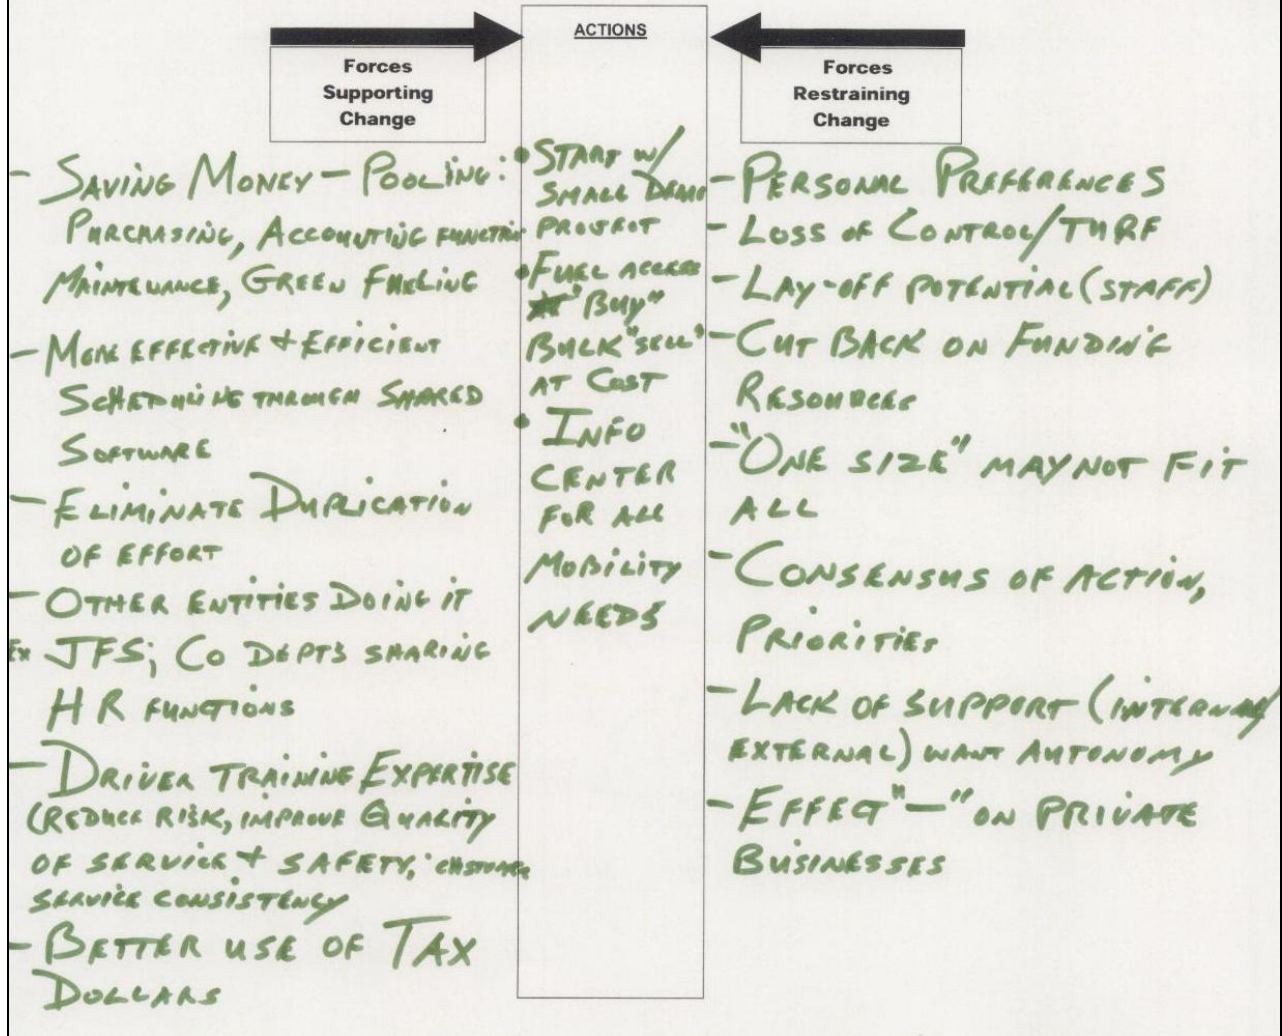 ACTIONS
Forces
Supporting
Change
- SAVING MONEY - POOLING:
PURCHASING, ACCOUNTING FUNCTION
MAINTENANCE, GREEN FUELING
- MORE EFFECTIVE + EFFICIENT
SCHEDULING THROUGH SHARED
SOFTWARE
- ELIMINATE DUPLICATION
OF EFFORT
- OTHER ENTITIES DOING IT
EX JFS; CO DEPTS SHARING
HR FUNCTIONS
- DRIVER TRAINING EXPERTISE
(REDUCE RISK, IMPROVE QUALITY
OF SERVICE + SAFETY; CUSTOMER
SERVICE CONSISTENCY
- BETTER USE OF TAX
DOLLARS
• START W/
SMALL DEMO
PROJECT
• FUEL ACCESS
"BUY"
BULK "SELL"
AT COST
• INFO
CENTER
FOR ALL
MOBILITY
NEEDS
Forces
Restraining
Change
- PERSONAL PREFERENCES
- LOSS OF CONTROL/TURF
- LAY-OFF POTENTIAL (STAFF)
- CUT BACK ON FUNDING
RESOURCES
- "ONE SIZE" MAY NOT FIT
ALL
- CONSENSUS OF ACTION,
PRIORITIES
- LACK OF SUPPORT (INTERNAL/
EXTERNAL) WANT AUTONOMY
- EFFECT "-" ON PRIVATE
BUSINESSES